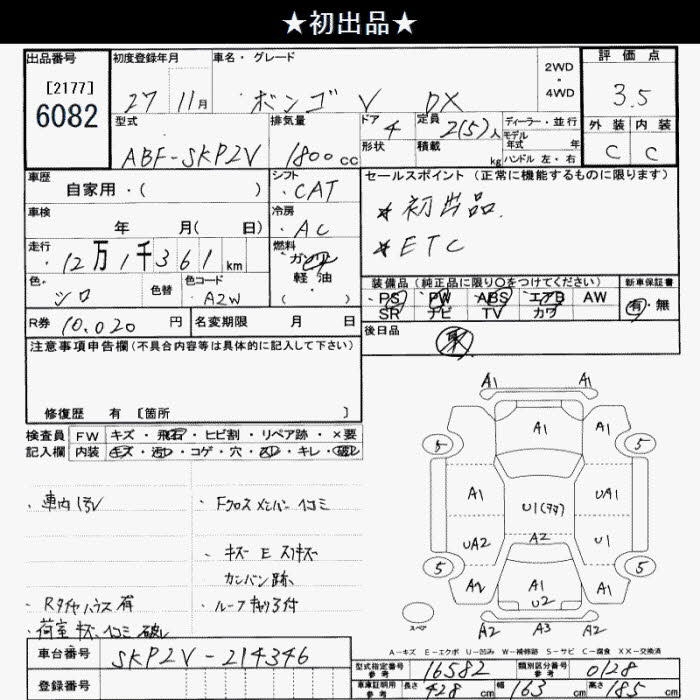 ★初出品★
出品番号
[2177]
6082
初度登録年月
27 11月
車名・グレード
ボンゴ V DX
2WD
・
4WD
評価点
3.5
外装 内装
C C
型式
ABF-SKP2V
排気量
1800cc
ドア 4
形状
定員 2(5)人
積載 kg
ディーラー・並行
モデル年式 年
ハンドル 左・右
車歴
自家用・( )
シフト
CAT
セールスポイント(正常に機能するものに限ります)
★初出品.
★ETC
車検
年 月( 日)
冷房
AC
走行
12万1千361km
燃料
ガソリン
軽油
( )
色
シロ
色替
色コード
A2W
装備品(純正品に限り○をつけてください)
PS PW ABS エアB AW
SR ナビ TV カワ
新車保証書
有・無
R券 10,020円
名変期限 月 日
後日品
注意事項申告欄(不具合内容等は具体的に記入して下さい)
修復歴 有 [箇所 ]
検査員 FW キズ・飛石・ヒビ割・リペア跡・×要
記入欄 内装 キズ・汚レ・コゲ・穴・・キレ・破レ
・Fクロスメンバー凹コミ
・キズ E スリキズ
カンバン跡
・Rタイヤハウス有
・荷室キズ、凹コミ破レ
A1 A1
A1 A1 A1
5 5
A1 U1 UA1
UA2 A2 U1
5 5
A2 A1 A1
U2
スペア
A2 A3 A2
A-キズ E-エクボ U-凹み W-補修跡 S-サビ C-腐食 XX-交換済
車台番号 SKP2V-214346
登録番号
型式指定番号参考 16582
類別区分番号参考 0128
車庫証明用参考 長さ 428cm 幅 163cm 高さ 185cm